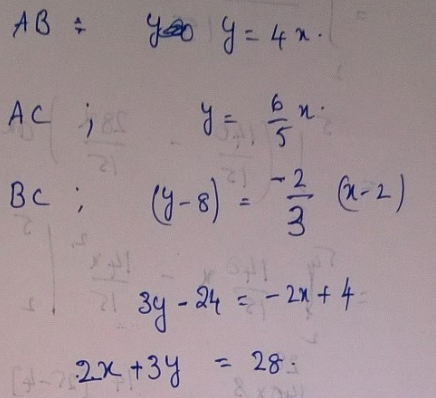 AB : y = 4x.
AC ; y = 6/5 x.
BC ; (y-8) = -2/3 (x-2)
3y - 24 = -2x + 4
2x + 3y = 28.